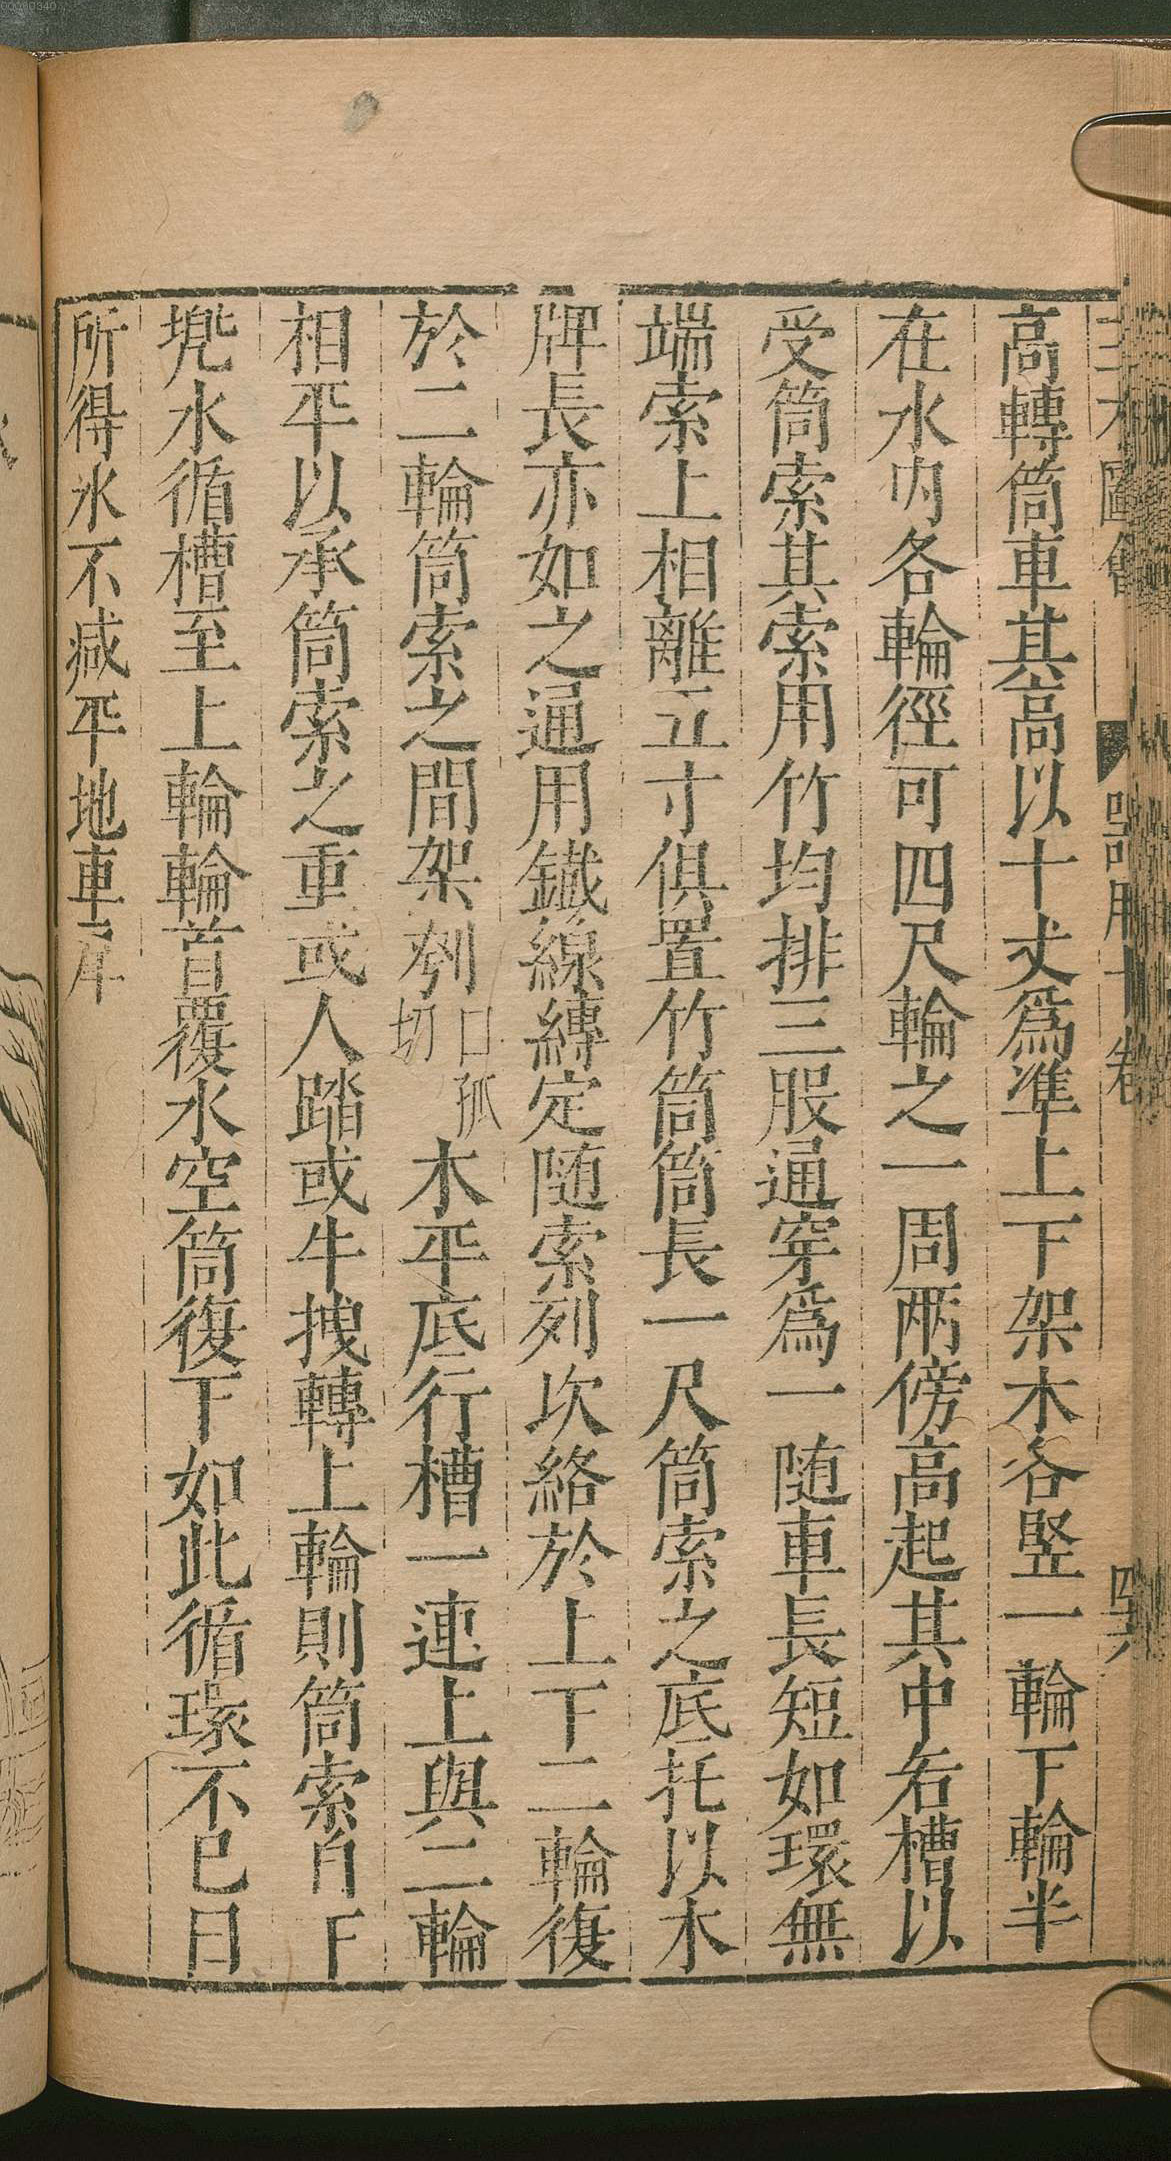 00000340
三才圖會 器用十卷 四六
高轉筒車其高以十丈爲準上下架木各竪一輪下輪半
在水內各輪徑可四尺輪之一周兩傍高起其中若槽以
受筒索其索用竹均排三股通穿爲一随車長短如環無
端索上相離五寸俱置竹筒筒長一尺筒索之底托以木
牌長亦如之通用鐵線縳定随索列次絡於上下二輪復
於二輪筒索之間架刳口孤切木平底行槽一連上與二輪
相平以承筒索之重或人踏或牛拽轉上輪則筒索自下
兠水循槽至上輪輪首覆水空筒復下如此循環不已日
所得水不減平地車戽